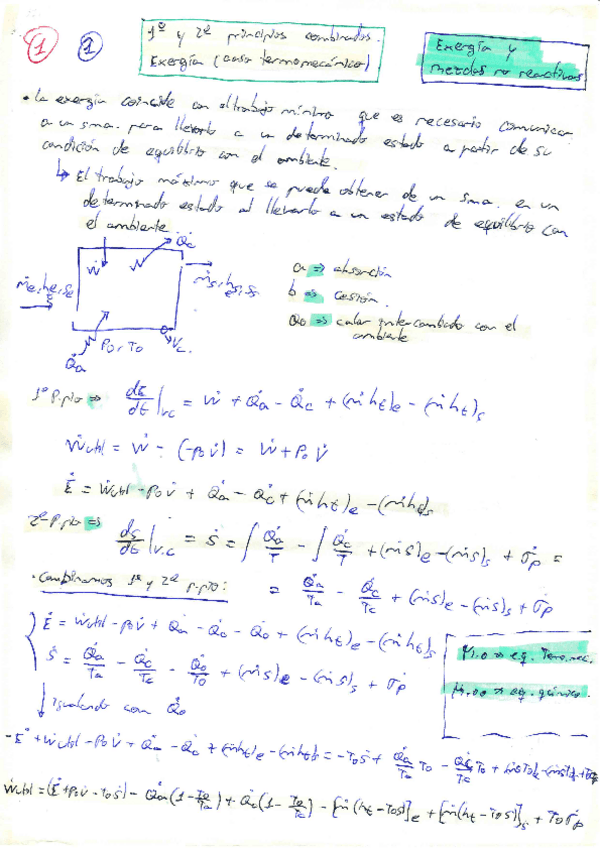 1 1
1º y 2º principios combinados.
Exergía (caso termomecánico)
Exergía y
mezclas no reactivas
• La exergía coincide con el trabajo mínimo que es necesario comunicar
a un sma. para llevarlo a un determinado estado a partir de su
condición de equilibrio con el ambiente.
↳ El trabajo máximo que se puede obtener de un sma. en un
determinado estado al llevarlo a un estado de equilibrio con
el ambiente
Q̇c
Ẇ
ṁe, he, se
ṁs, hs, ss
P0, T0
Vc.
Q̇a
a => absorción
b => cesión.
Q0 => calor intercambiado con el
ambiente
1º P.pio => dE/dt|v.c = Ẇ + Q̇a - Q̇c + (ṁht)e - (ṁht)s
Ẇutil = Ẇ - (-p0V̇) = Ẇ + P0V̇
Ė = Ẇutil - p0V̇ + Q̇a - Q̇c + (ṁht)e - (ṁht)s
2º P.pio => dS/dt|v.c = Ṡ = ∫ Q̇a/T - ∫ Q̇c/T + (ṁs)e - (ṁs)s + σ̇p =
= Q̇a/Ta - Q̇c/Tc + (ṁs)e - (ṁs)s + σ̇p
• Combinamos 1º y 2º p.pio:
Ė = Ẇutil - p0V̇ + Q̇a - Q̇c - Q̇0 + (ṁht)e - (ṁht)s
Ṡ = Q̇a/Ta - Q̇c/Tc - Q̇0/T0 + (ṁs)e - (ṁs)s + σ̇p
μi,0 => eq. Termomec.
μi,00 => eq. químico.
↓ Igualando con Q̇0
-Ė + Ẇutil - p0V̇ + Q̇a - Q̇c + (ṁht)e - (ṁht)s = -T0Ṡ + Q̇a/Ta T0 - Q̇c/Tc T0 + (ṁsT0)e - (ṁsT0)s + T0σ̇p
Ẇutil = (Ė + p0V̇ - T0Ṡ) - Q̇a(1 - T0/Ta) + Q̇c(1 - T0/Tc) - [ṁ(ht - T0s)]e + [ṁ(ht - T0s)]s + T0σ̇p